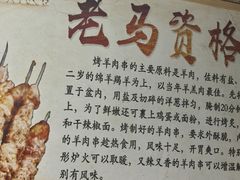 老马资格
烤羊肉串的主要原料是羊肉，佐料有盐、
二岁的绵羊羯羊为上，以当年羊羔肉最佳。先
置于盆内，用盐及切碎的洋葱拌匀，腌制20分
后，为了鲜嫩还可裹上鸡蛋或面粉，进行烤炙，
和干辣椒面。烤制好的羊肉串，要求外酥脆，
的羊肉串趁热食用，风味十足，开胃爽口。特别
形炉火可以取暖，又辣又香的羊肉串可以增温
别有风味。